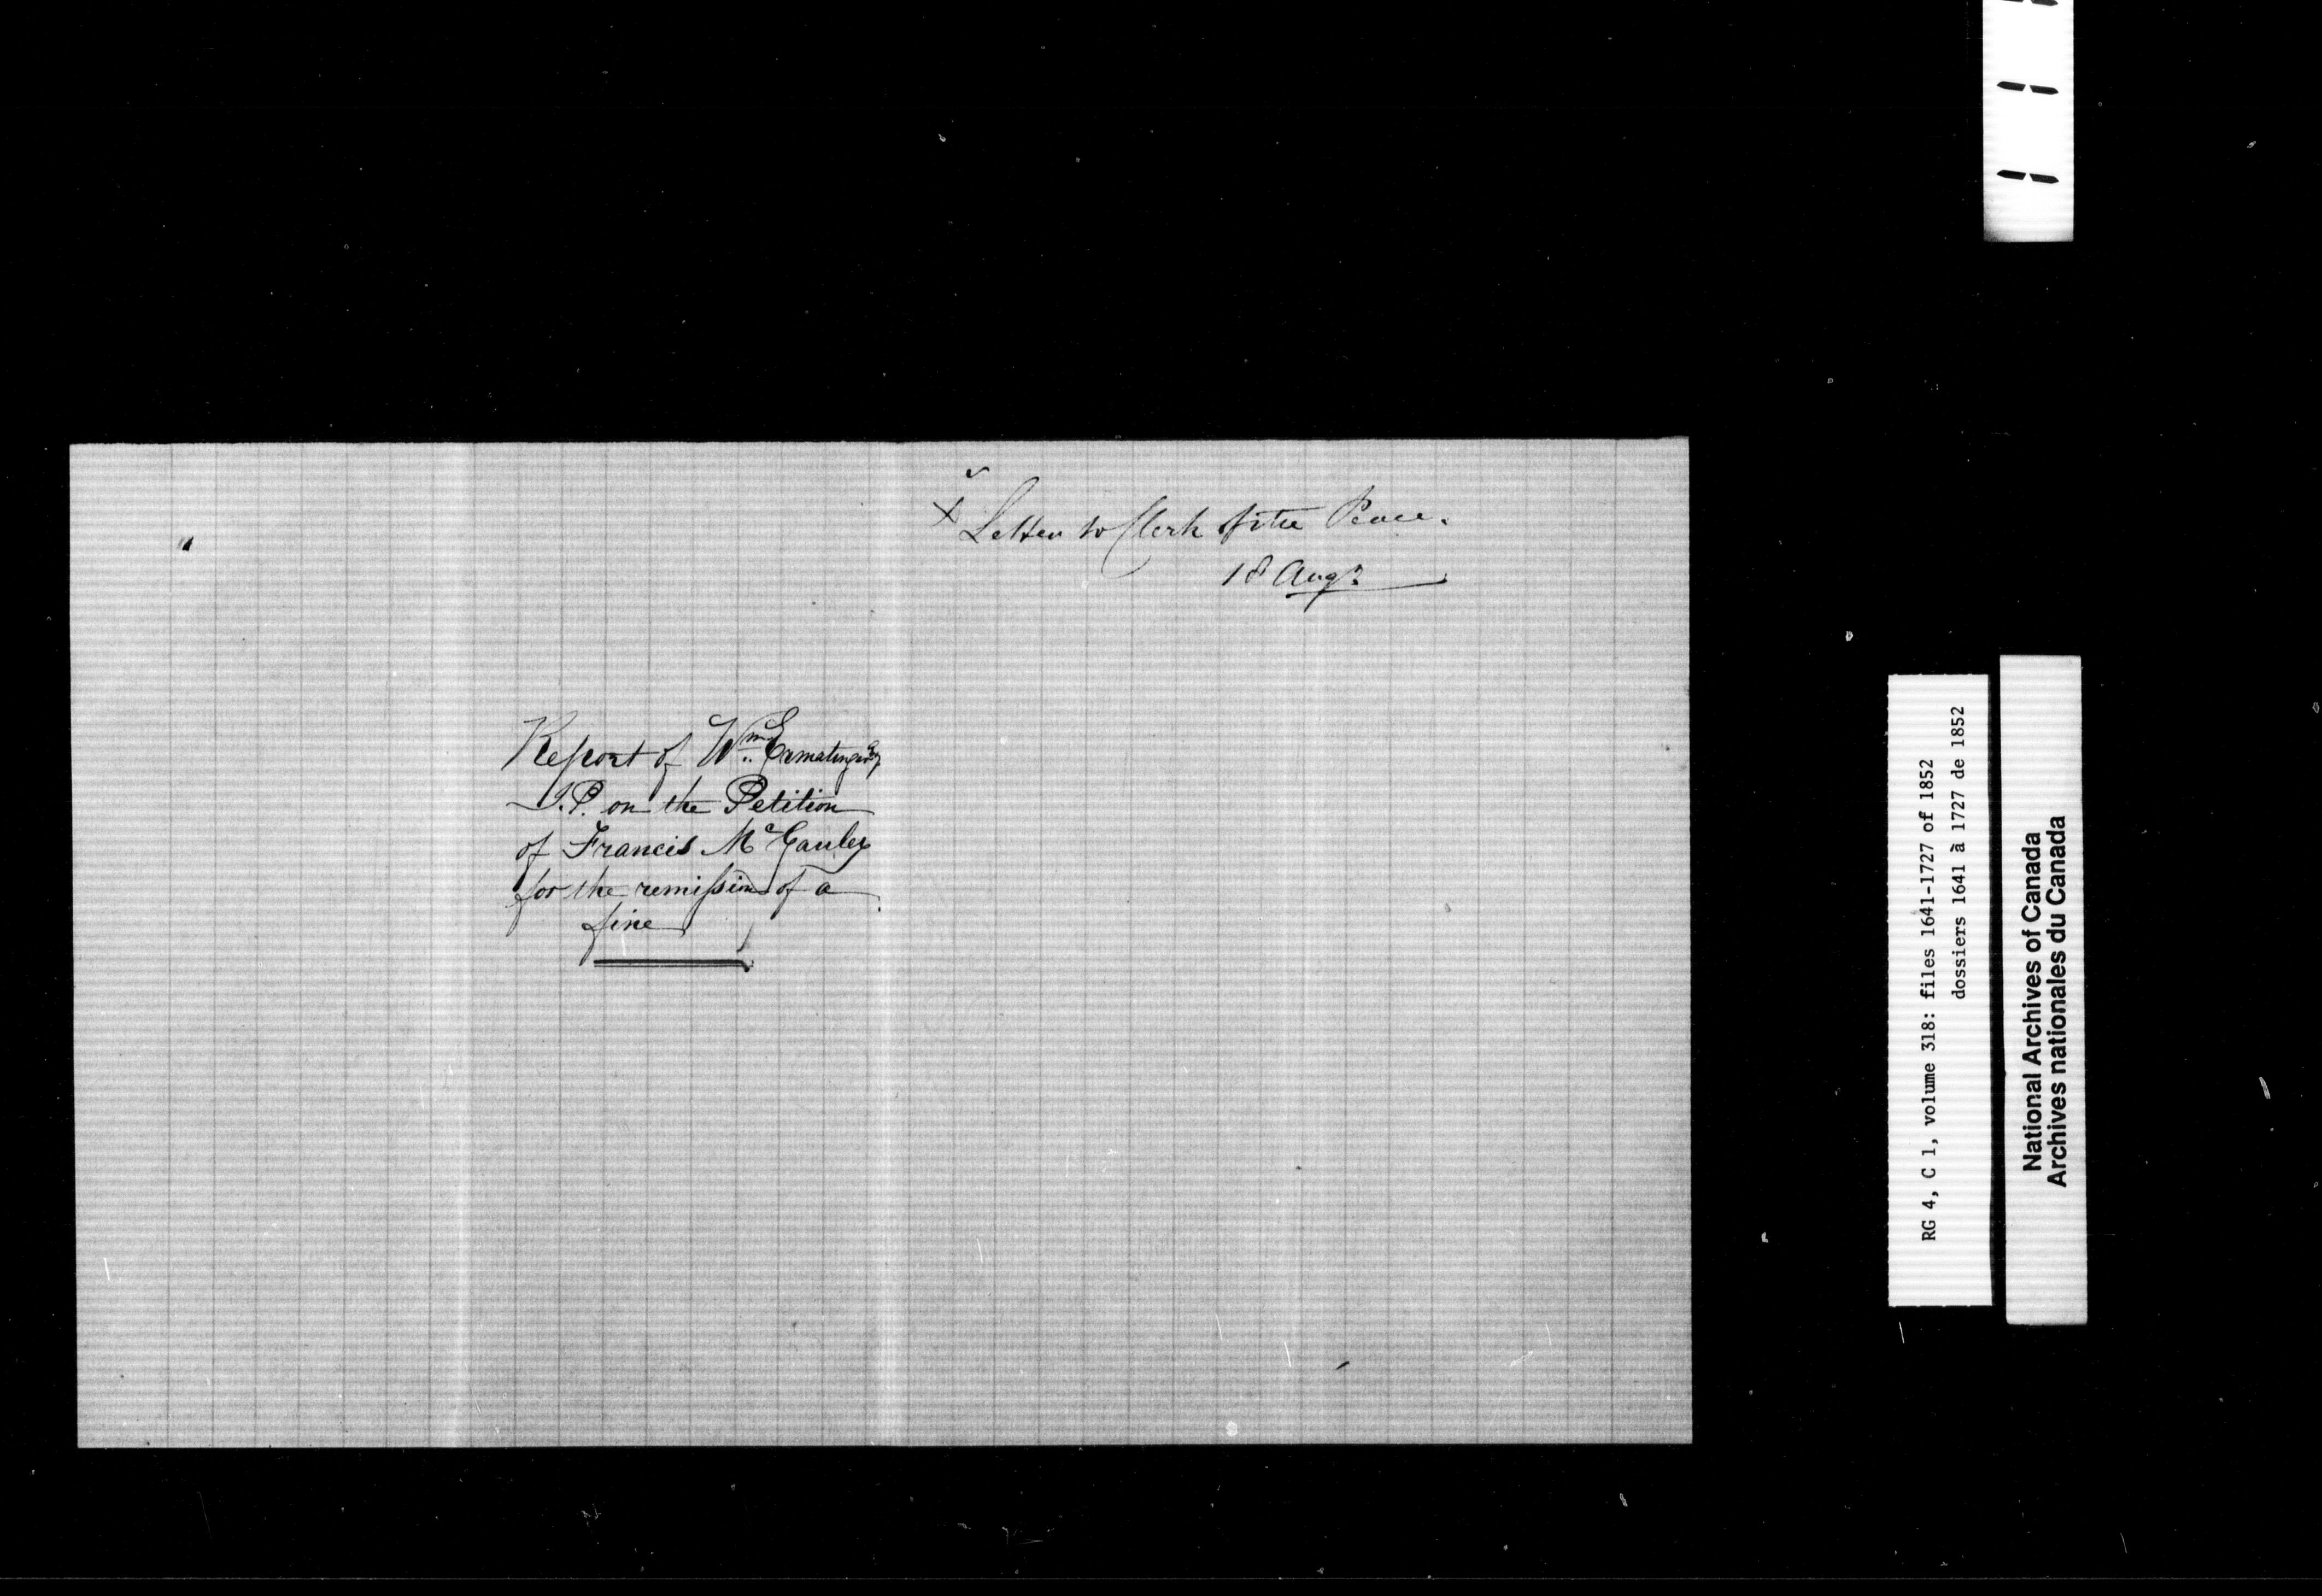 x Letter to Clerk of the Peace.
18 Augt
Report of Wm Ermatinger Esq
I.P. on the Petition
of Francis McGauley
for the remission of a
fine
RG 4, C 1, volume 318: files 1641-1727 of 1852
dossiers 1641 à 1727 de 1852
National Archives of Canada
Archives nationales du Canada